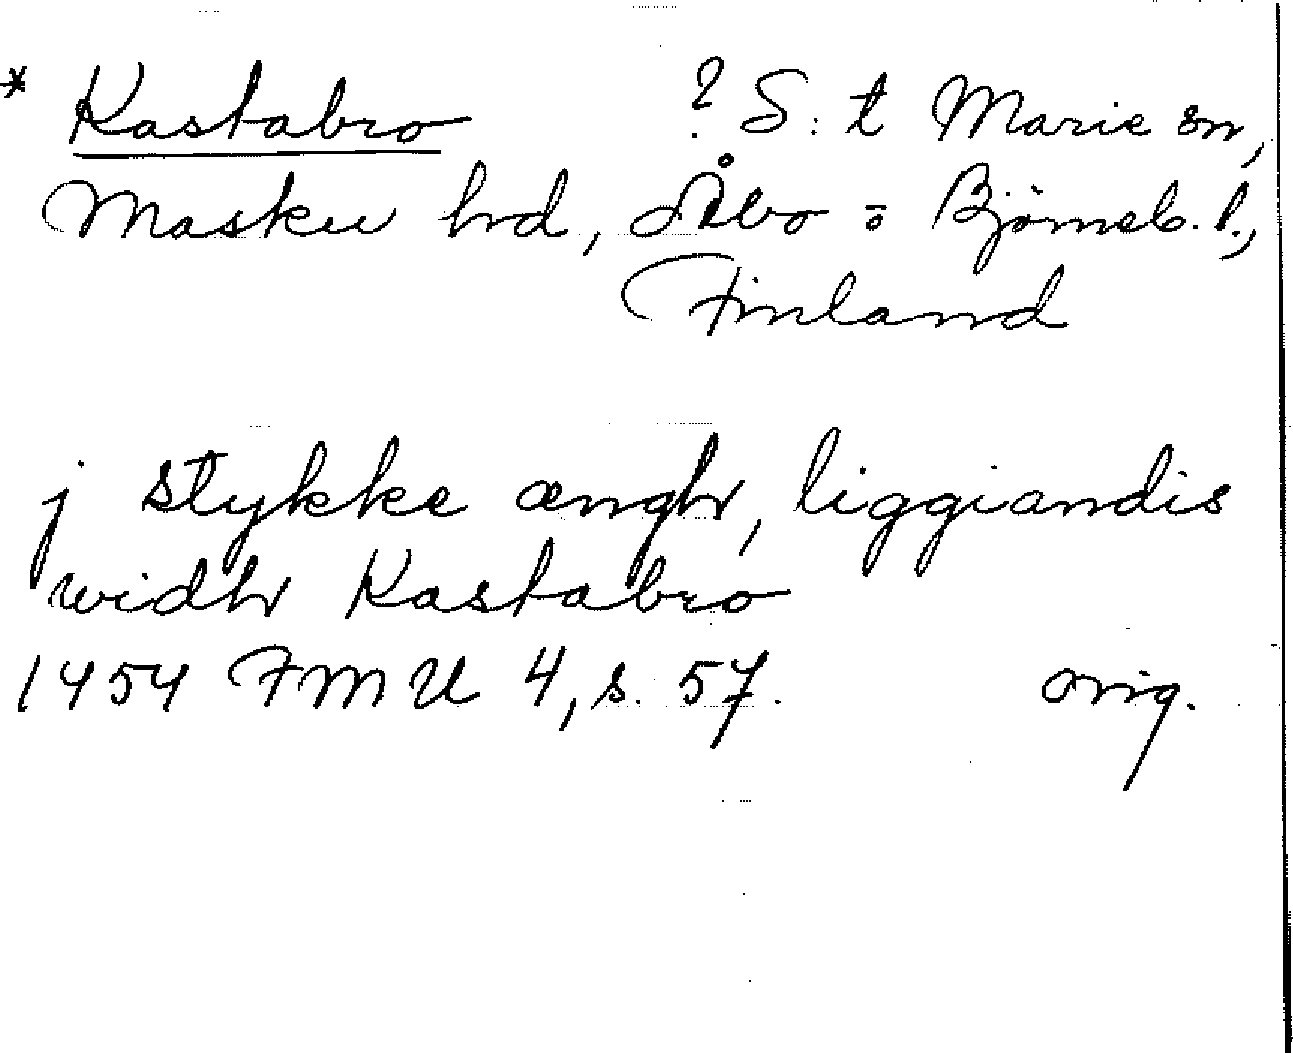 * Kastabro ? S:t Marie sn,
Masku hd, Åbo = Björneb. l.,
Finland
j stykke ænghr, liggiandis
widhr Kastabro
1454 FMU 4, s. 57. orig.